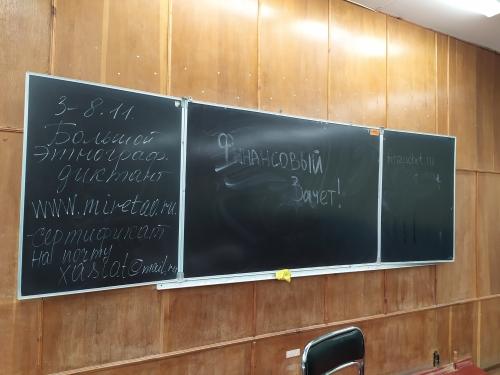 3-8.11.
Большой
этнограф.
диктант
www.miretno.ru.
-сертификат
на почту
xastat@mail.ru
Финансовый
Зачет!